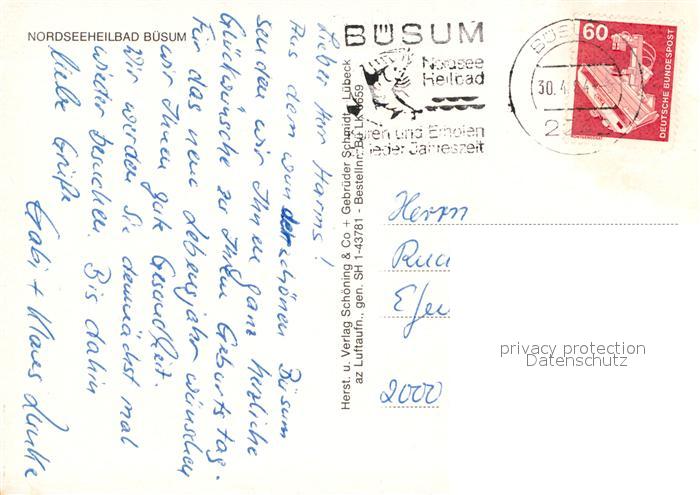 NORDSEEHEILBAD BÜSUM
Lieber Herr Harms!
Aus dem wunderschönen Büsum
senden wir Ihnen ganz herzliche
Glückwünsche zu Ihrem Geburtstag.
Für das neue Lebensjahr wünschen
wir Ihnen gute Gesundheit.
Wir werden Sie demnächst mal
wieder besuchen. Bis dahin
liebe Grüße
Gabi + Klaus
Herst. u. Verlag Schöning & Co + Gebrüder Schmidt, Lübeck
az Luftaufn., gen. SH 1-43781 - Bestellnr. Bü LK 6659
BÜSUM
Nordsee
Heilbad
und Erholen
jeder Jahreszeit
30.4.
60
DEUTSCHE BUNDESPOST
Herrn
2000
privacy protection
Datenschutz